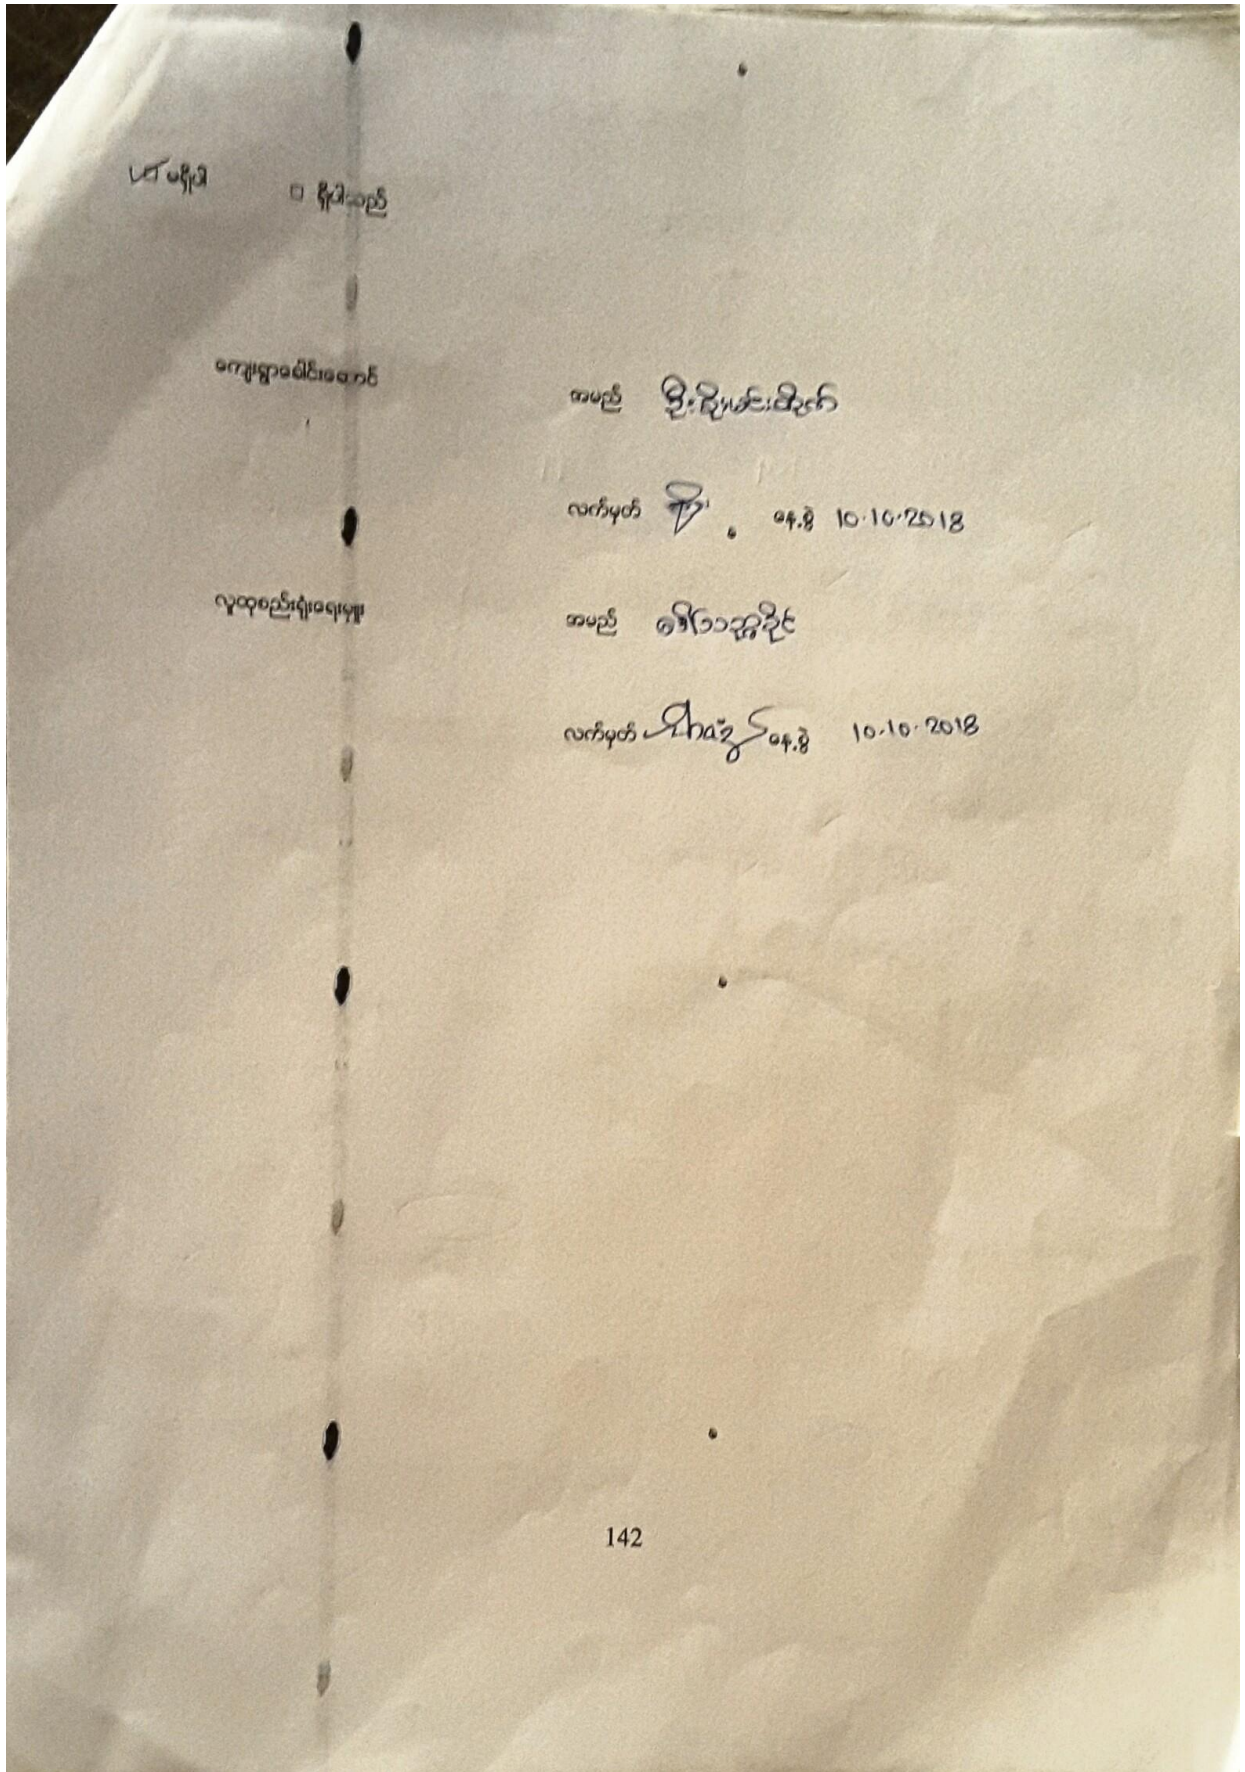 ☑ မရှိပါ □ ရှိပါသည်
ကျေးရွာခေါင်းဆောင်
အမည် ဦးစိုးမင်းထိုက်
လက်မှတ် နေ့စွဲ 10.10.2018
လူထုစည်းရုံးရေးမှူး
အမည်
လက်မှတ် နေ့စွဲ 10.10.2018
142